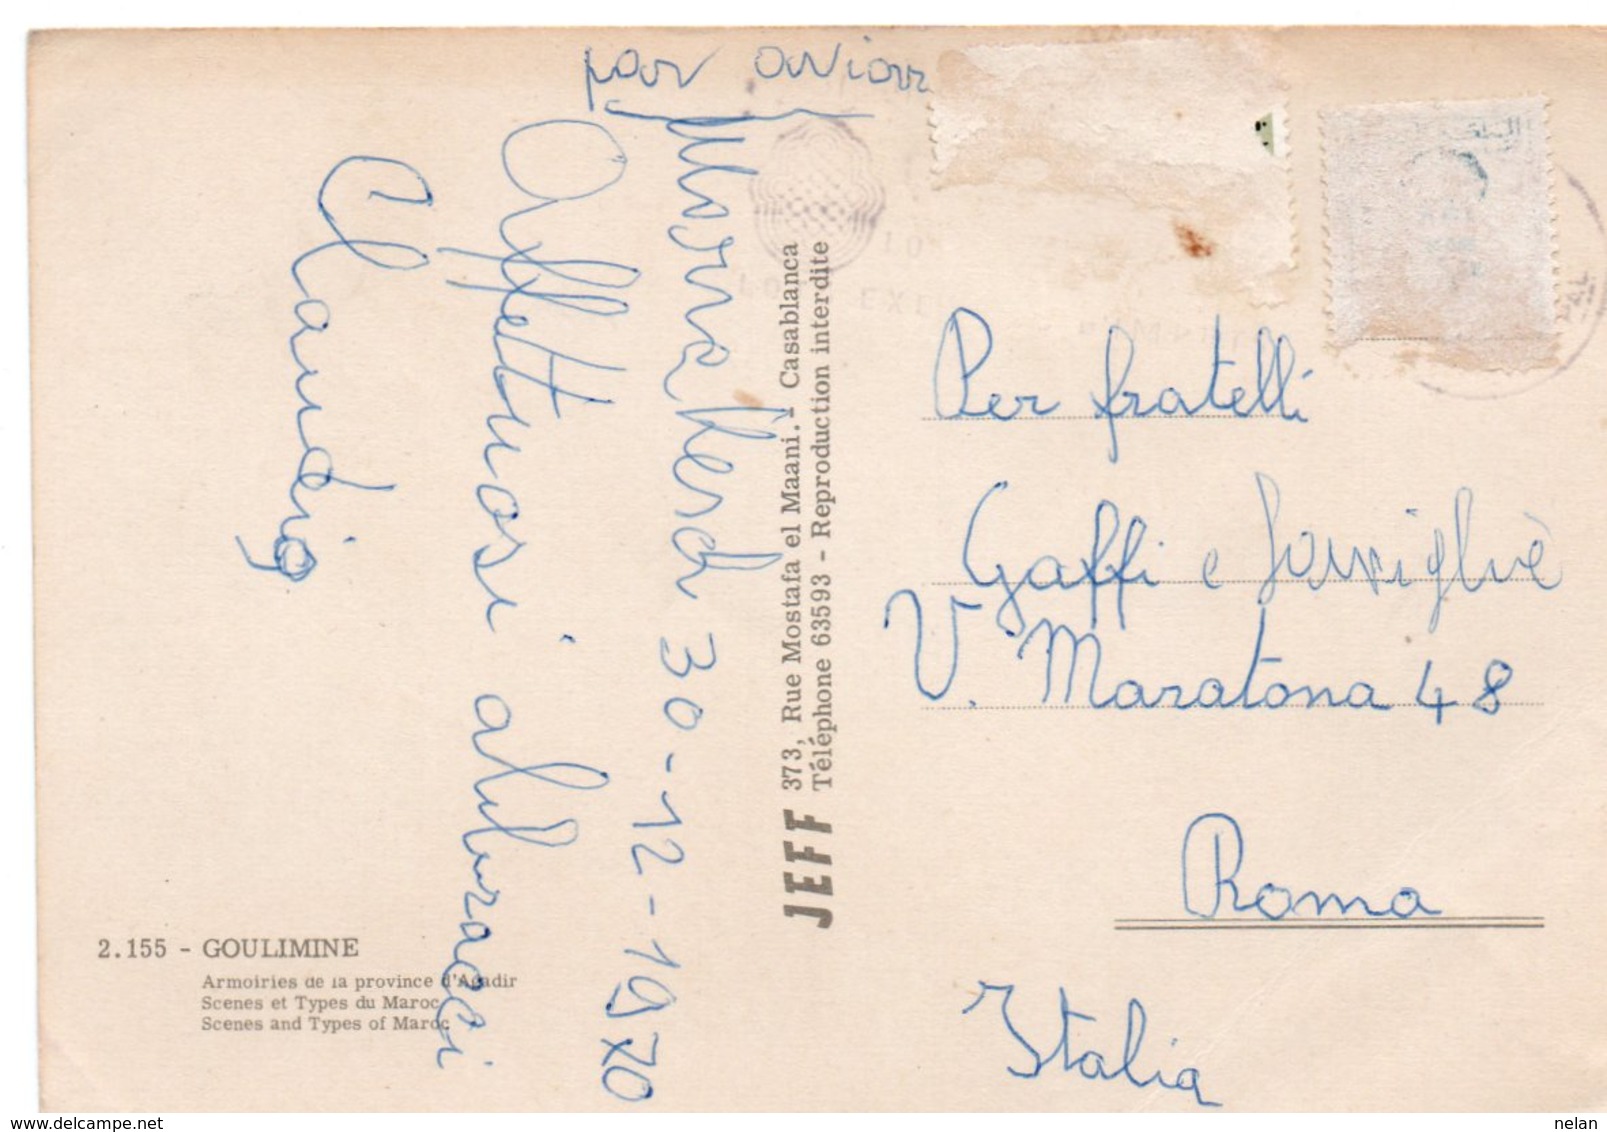 par avion
Marrakech 30-12-1970
Affettuosi abbracci
Claudio
Per fratelli
Gaffi e famiglie
V. Maratona 48
Roma
Italia
JEFF 373, Rue Mostafa el Maani. - Casablanca
Téléphone 63593 - Reproduction interdite
2.155 - GOULIMINE
Armoiries de la province d'Agadir
Scenes et Types du Maroc
Scenes and Types of Maroc
www.delcampe.net
nelan